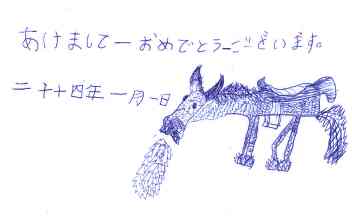 あけましてーおめでとうーございます。
二千十四年一月一日